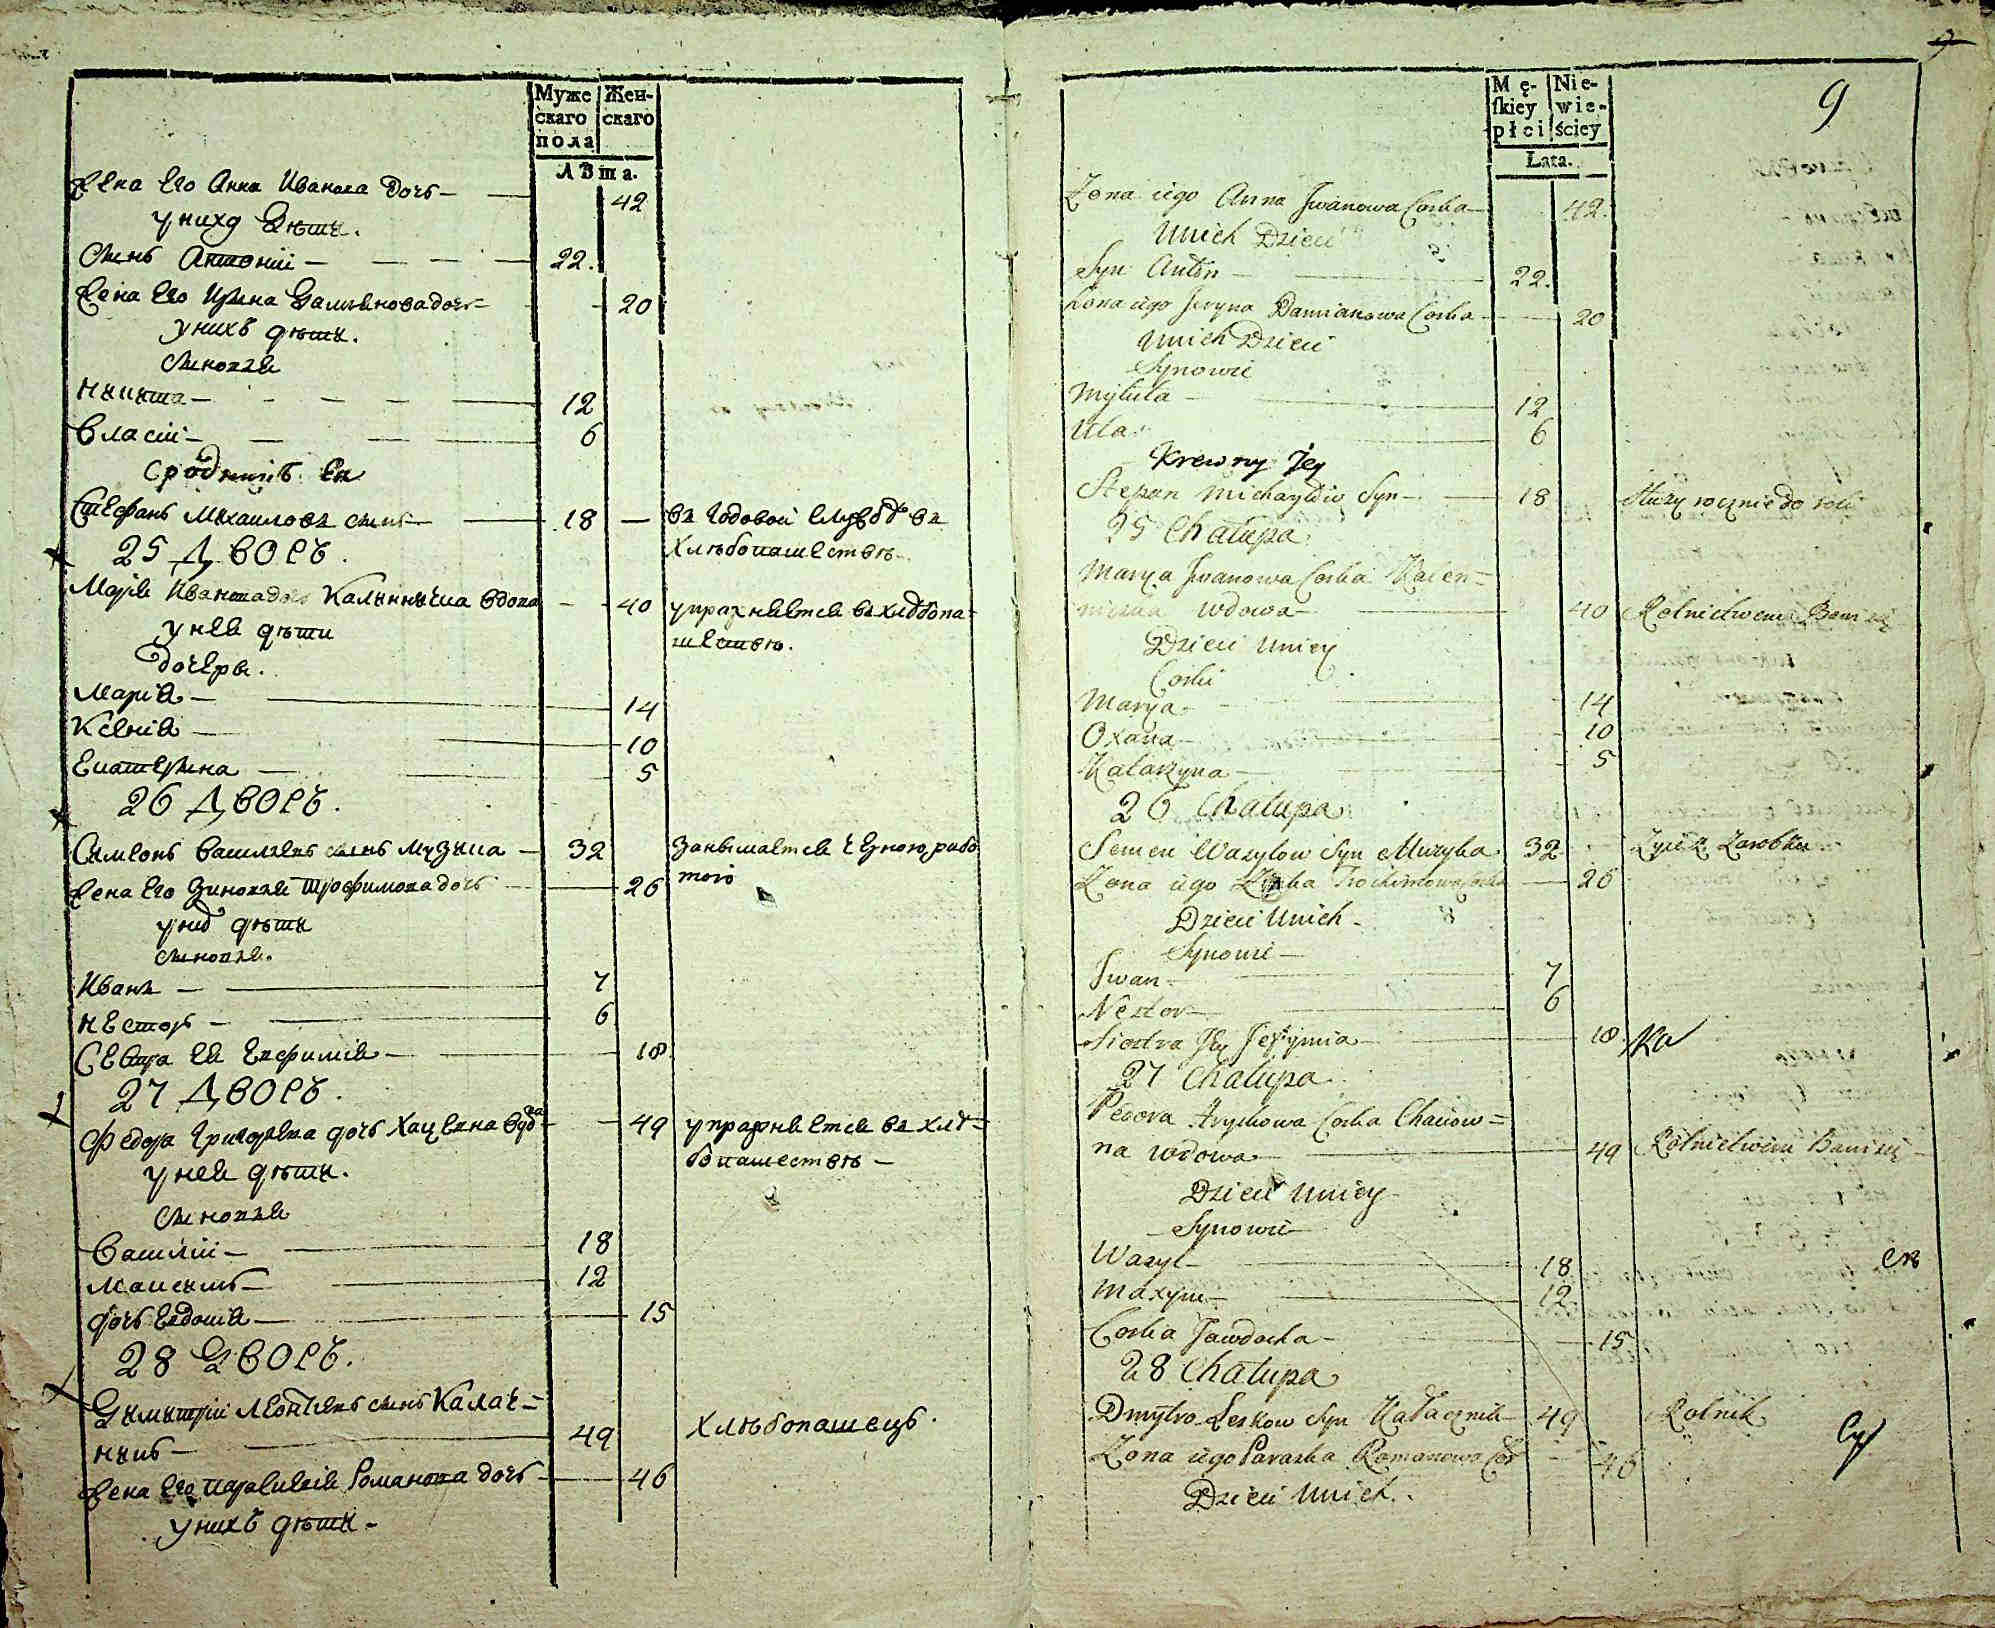 Муже
скаго
пола
Жен-
скаго
Лѣта.
Жена Его Анна Иванова дочь 42
у нихъ Дѣти.
Сынъ Антоній 22.
Жена Его Ирина Дамянова дочь 20
у нихъ дѣти.
сыновья
Никита 12
Власій 6
Сродникъ Ея
Стефанъ Михаиловъ сынъ 18 въ Годовой Службѣ въ
Хлѣбопашествѣ
25 ДВОРЪ.
Марія Иванова дочь Калынычка вдова 40 упражняется въ хлѣбопа=
шествѣ.
у нея дѣти
дочеры.
Марія 14
Ксенія 10
Екатерина 5
26 ДВОРЪ.
Симеонъ Васильевъ сынъ Музыка 32 занымается Чёрною рабо
тою
Жена Его Зиновья Трофимова дочь 26
у нихъ дѣти
сыновья.
Иванъ 7
Несторъ 6
Сестра Ея Евфимія 18
27 ДВОРЪ.
Федора Григорьева дочь Хацевна вдова 49 упражняется въ хлѣ=
бопашествѣ
у нея дѣти.
сыновья
Василій 18
Максимъ 12
дочь Евдокія 15
28 ДВОРЪ.
Димитрій Леонтьевъ сынъ Калач=
никъ 49 Хлѣбопашецъ.
Жена Его Параскевія Романова дочь 46
у нихъ дѣти
9
Mę-
ſkiey
płci
Nie-
wie-
ściey
Lata.
Zona iego Anna Jwanowa Corka 42.
Unich Dzieci
Syn Anton 22.
Zona iego Jeryna Damianowa Corka 20
Unich Dzieci
Synowie
Mykita 12
Ula 6
Krewny Jey
Stepan Michayłow Syn 18 Służy rocznie do roli
25 Chałupa
Marya Jwanowa Corka Kalen=
niczka wdowa 40 Rolnictwem Bawi się
Dzieci Uniey
Corki
Marya 14
Oxana 10
Katarzyna 5
26 Chałupa
Semen Wasylow Syn Muzyka 32 Zyie z Zarobku
Zona iego Trochimowa Corka 26
Dzieci Unich
Synowie
Jwan 7
Nestor 6
Siostra Jey Jefymia 18
27 Chałupa
Fedora Hryckowa Corka Chacow=
na wdowa 49 Rolnictwem Bawi się
Dzieci Uniey
Synowie
Wasyl 18
Maxym 12
Corka Jawdocha 15
28 Chałupa
Dmytro Leskow Syn Kałacznik 49 Rolnik
Zona iego Paraska Romanowa Cor 46
Dzieci Unich.